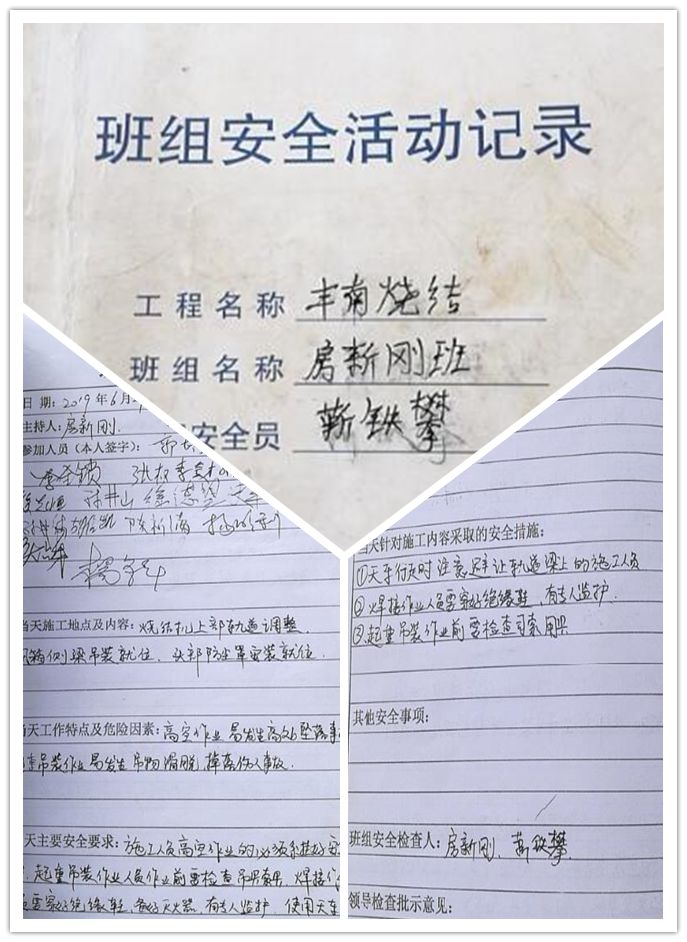 班组安全活动记录
工程名称 丰南烧结
班组名称 房新刚班
安全员 靳铁攀
日 期：2019年6月
主持人：房新刚
参加人员（本人签字）：
当天施工地点及内容：烧结机上部轨道调整
侧梁吊装就位、头部防尘罩安装就位
当天工作特点及危险因素：高空作业易发生高处坠落事
吊装作业易发生吊物滑脱掉落伤人事故
天主要安全要求：施工人员高空作业的必须系挂好安
起重吊装作业人员作业前需检查吊索具，焊接作
需穿好绝缘鞋，备好灭火器，有专人监护 使用天车
当天针对施工内容采取的安全措施：
①天车行走时注意避让轨道梁上的施工人员
②焊接作业人员需穿好绝缘鞋 有专人监护
③起重吊装作业前需检查吊索具
其他安全事项：
班组安全检查人：房新刚、靳铁攀
领导检查批示意见：